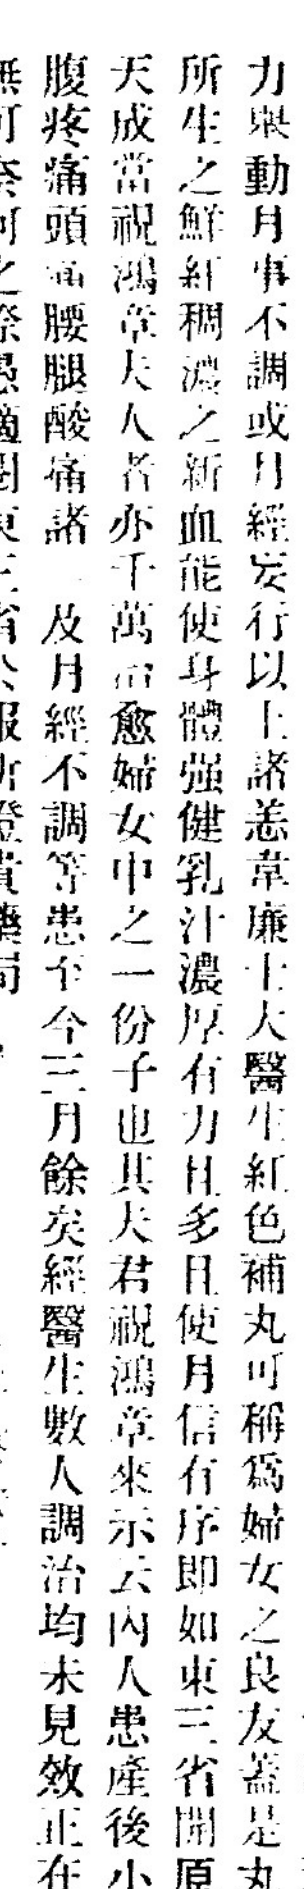 力與動月事不調或月經妄行以上諸恙韋廉士大醫生紅色補丸可稱爲婦女之良友蓋是丸
所生之鮮紅稠濃之新血能使身體强健乳汁濃厚有力且多且使月信有序即如東三省開原
天成當祝鴻章夫人者亦千萬治愈婦女中之一份子也其夫君祝鴻章來示云內人患產後小
腹疼痛頭痛腰腿酸痛諸 及月經不調等患至今三月餘矣經醫生數人調治均未見效正在